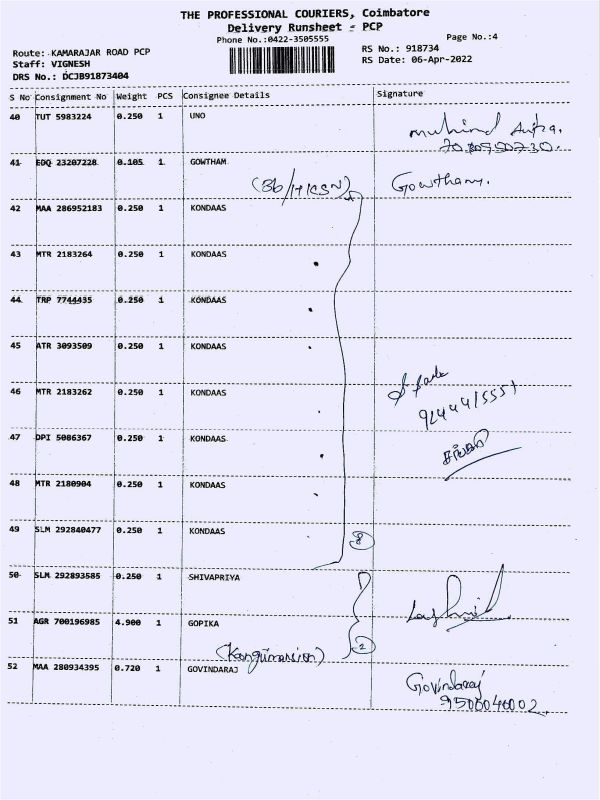 THE PROFESSIONAL COURIERS, Coimbatore
Delivery Runsheet - PCP
Phone No.:0422-3505555
Page No.:4
Route: KAMARAJAR ROAD PCP
RS No.: 918734
Staff: VIGNESH
RS Date: 06-Apr-2022
DRS No.: DCJB91873404
S No Consignment No Weight PCS Consignee Details Signature
40 TUT 5983224 0.250 1 UNO
41 EDQ 23207228 0.105 1 GOWTHAM
Gowtham.
42 MAA 286952183 0.250 1 KONDAAS
43 MTR 2183264 0.250 1 KONDAAS
44 TRP 7744435 0.250 1 KONDAAS
45 ATR 3093509 0.250 1 KONDAAS
46 MTR 2183262 0.250 1 KONDAAS
47 DPI 5086367 0.250 1 KONDAAS
48 MTR 2180904 0.250 1 KONDAAS
49 SLM 292840477 0.250 1 KONDAAS
8
50 SLM 292893585 0.250 1 SHIVAPRIYA
51 AGR 700196985 4.900 1 GOPIKA
2
52 MAA 280934395 0.720 1 GOVINDARAJ
Govindaraj
9500040002